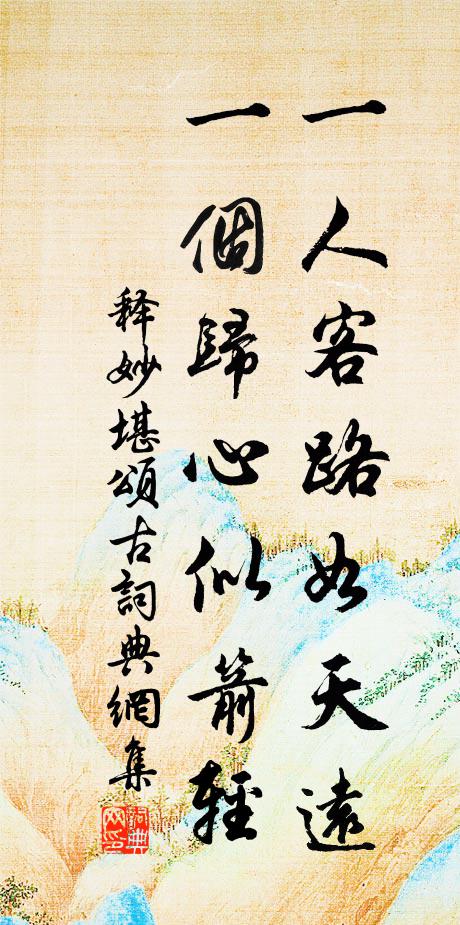 一人客路如天遠
一個歸心似箭輕
释妙堪頌古詞典網集
詞典網印